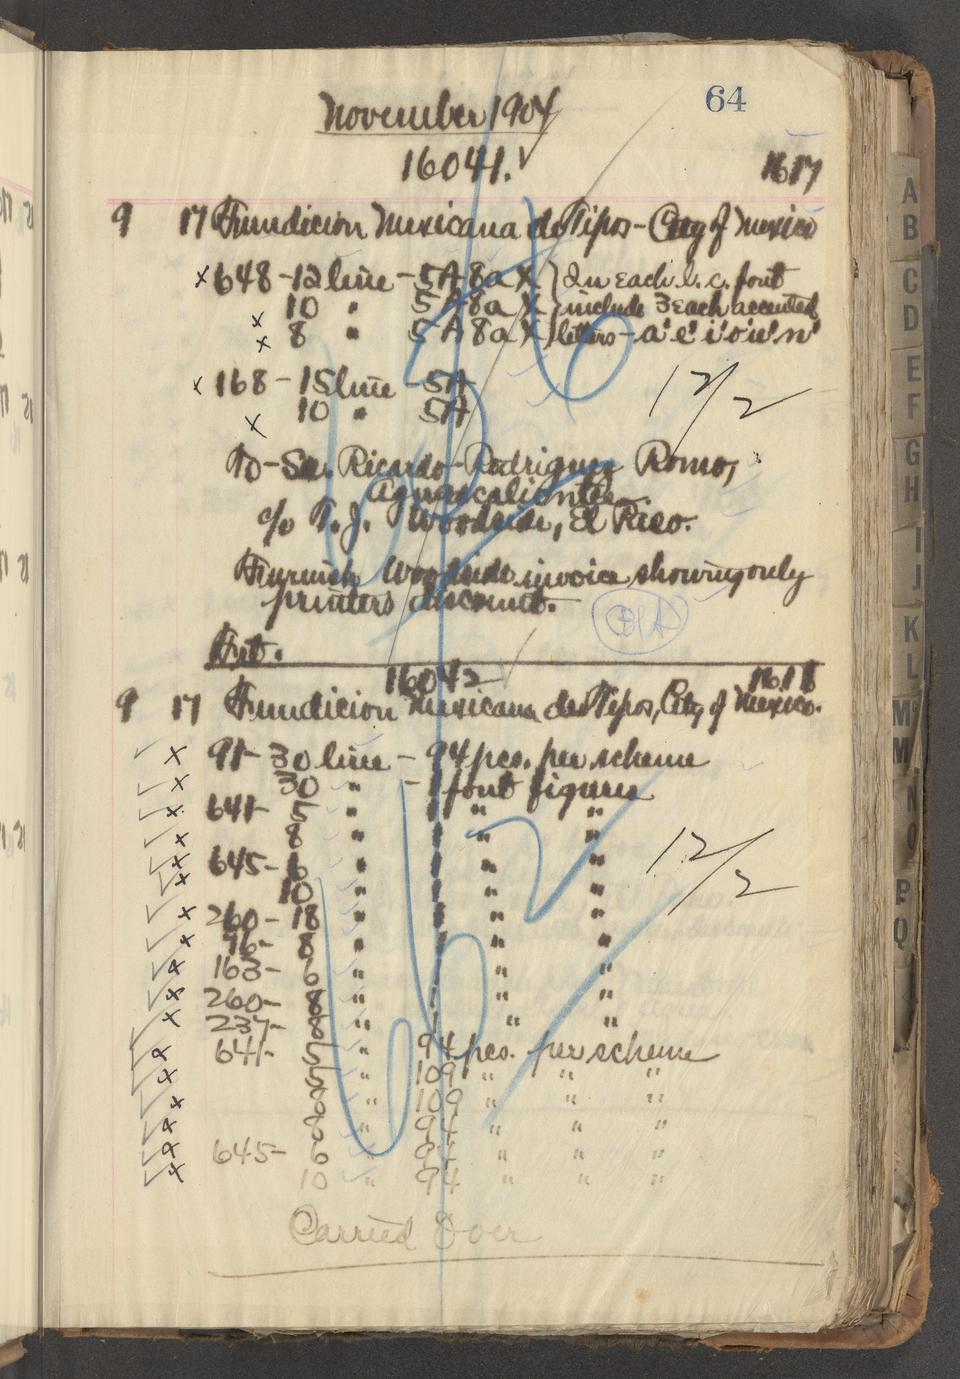 64
November 1904
16041. 1617
9 17 Fundicion Mexicana de Tipos - City of Mexico
x 648 - 12 line - 5A 8a X } In each l.c. font
x 10 " 5A 8a X } include 3 each accented
x 8 " 5A 8a X } letters - a' e' i' o' u' n'
x 168 - 15 line 5A
x 10 " 5A
12/2
To - Sr. Ricardo Rodriguez Romo,
Aguascalientes
c/o T. J. Woodside, El Paso.
Furnish Woodside invoice showing only
printers discount.
Frt.
16042 1618
9 17 Fundicion Mexicana de Tipos, City of Mexico.
x 91 - 30 line - 94 pcs. per scheme
x 30 " - 1 font figures
x 641 - 5 " 1 " "
x 8 " 1 " "
x 645 - 6 " 1 " "
x 10 " 1 " "
x 260 - 18 " 1 " "
x 96 - 8 " 1 " "
x 163 - 6 " 1 " "
x 260 - 8 " 1 " "
x 237 - 8 " 1 " "
x 641 - 5 " 94 pcs. per scheme
x 5 " 109 " " "
x 8 " 109 " " "
x 8 " 94 " " "
x 645 - 6 " 94 " " "
x 10 " 94 " " "
12/2
Carried Over
A
B
C
D
E
F
G
H
I
J
K
L
Mc
M
N
O
P
Q